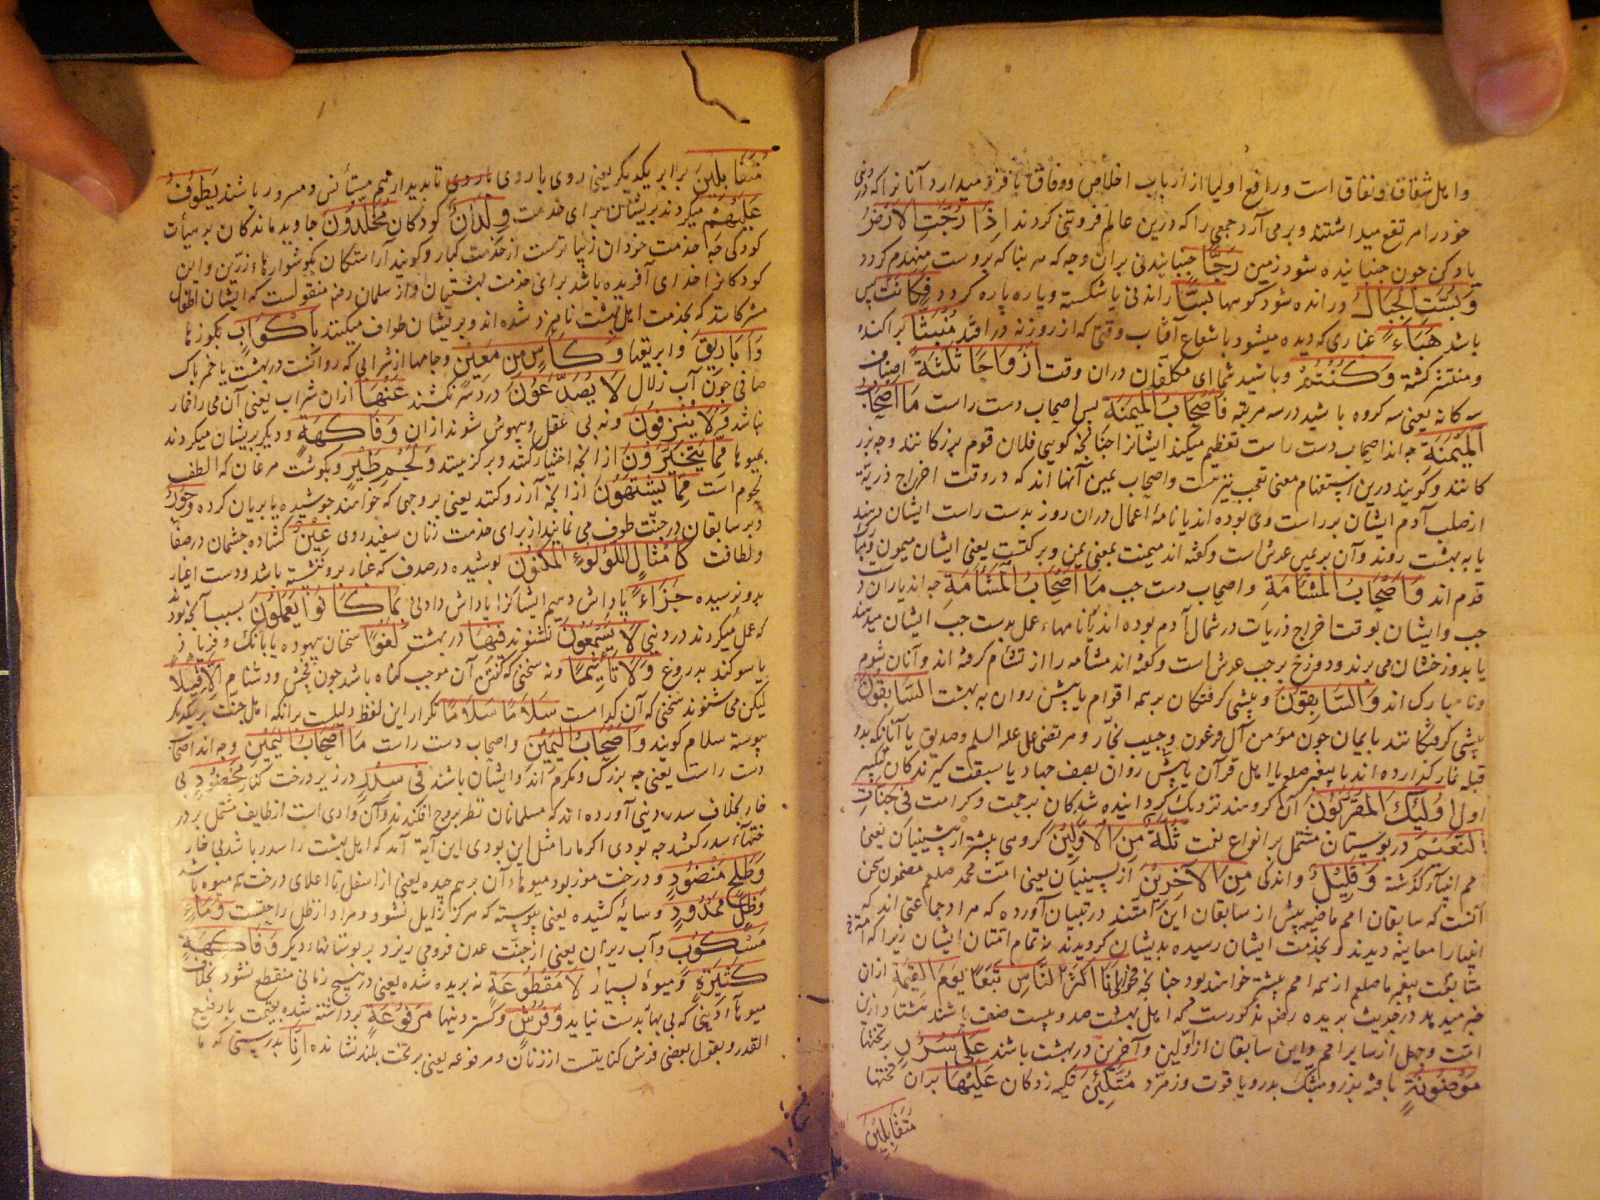 و اهل شقاق و نفاق است و رافع اولیا از ارباب اخلاص و وفاق یا فرو میدارد آنانرا که در دنی
خود را مرتفع میداشتند و برمی آرد جمعی را که درین عالم فروتنی کردند اِذَا رُجَّتِ الْاَرْضُ
یاد کن چون جنبانیده شود زمین رَجًّا جنبانیدنی بران وجه که هر بنا که بروست منهدم گردد
وَ بُسَّتِ الْجِبَالُ و رانده شود کوهها بَسًّا راندنی یا شکسته و پاره پاره گردد فَکَانَتْ پس
باشد هَبَاءً غباری که دیده میشود با شعاع آفتاب وقتی که از روزنه در افتد مُنْبَثًّا پراکنده
و منتشر گشته وَ کُنْتُمْ و باشید شما ای مکلفان دران وقت اَزْوَاجًا ثَلٰثَةً اصناف
سه گانه یعنی سه گروه باشید در سه مرتبه فَاَصْحَابُ الْمَیْمَنَةِ پس اصحاب دست راست مَا اَصْحَابُ
الْمَیْمَنَةِ چه اند اصحاب دست راست تعظیم میکند ایشانرا چنانچه گویی فلان قوم بزرگانند و چه بزر
گانند و گویند درین استفهام معنی تعجب نیز هست و اصحاب یمین آنها اند که در وقت اخراج ذریة
از صلب آدم ایشان بر راست وی بوده اند یا نامهٔ اعمال دران روز بدست راست ایشان دهند
یا به بهشت روند و آن بر یمین عرش است و گفته اند میمنت بمعنی یمن و برکتست یعنی ایشان میمون
قدم اند وَ اَصْحَابُ الْمَشْأَمَةِ و اصحاب دست چپ مَا اَصْحَابُ الْمَشْأَمَةِ چه اند یاران د
چپ و ایشان بوقت اخراج ذریات در شمال آدم بوده اند یا نامهاء عمل بدست چپ ایشان میدهند
یا بدوزخشان می برند و دوزخ بر چپ عرش است و گفته اند مشأمه را از تشأم گرفته اند و آنان شوم
و نامبارک اند وَ السَّابِقُونَ و پیشی گرفتگان بر همه اقوام یا پیش روان به بهشت السَّابِقُونَ
پیشی گرفتگانند بایمان چون مؤمن آل فرعون و حبیب نجّار و مرتضی علی علیه السلم و صدیق یا آنانکه بدو
قبله نماز گزارده اند با پیغمبر صلعم یا اهل قرآن یا پیش روان بصف جهاد یا سبقت گیرندگان تکبیر
اول اُولٰئِکَ الْمُقَرَّبُونَ آن گروهند نزدیک گردانیده شدگان برحمت و کرامت فِی جَنَّاتِ
النَّعِیمِ در بوستان مشتمل بر انواع نعمت ثُلَّةٌ مِنَ الْاَوَّلِینَ گروهی بیشتر از پیشینیان یعنی
امم انبیاء گذشته وَ قَلِیلٌ و اندکی مِنَ الْآخِرِینَ از پسینیان یعنی امت محمد صلعم مضمون سخن
آنست که سابقان امم ماضیه بیش از سابقان این امتند در تبیان آورده که مراد جماعتی اند که
انبیا را معاینه دیدند و بخدمت ایشان رسیده بدیشان گرویدند نه تمام امتان ایشان زیرا که امة
متابعت پیغمبر ما صلعم از همه امم بیشتر خواهند بود چنانچه اَکْثَرُ النَّاسِ تَبَعًا یَوْمَ الْقِیٰمَةِ ازان
خبر میدهد در حدیث بریده رض مذکورست که اهل بهشت صد و بیست صف باشند هشتاد ازان
امت و چهل از سایر امم و این سابقان از اولین و آخرین در بهشت باشند عَلٰی سُرُرٍ بر تختها
مَوْضُونَةٍ بافته بزر و مشبک بدر و یاقوت و زمرد مُتَّکِئِینَ تکیه زدگان عَلَیْهَا بران تختها
مُتَقَابِلِینَ
مُتَقَابِلِینَ برابر یکدیگر یعنی روی با روی تا بدیدار هم مستأنس و مسرور باشند یَطُوفُ
عَلَیْهِمْ میگردند بریشان برای خدمت وِلْدَانٌ کودکان مُخَلَّدُونَ جاوید ماندگان بر هیأت
کودکی چه خدمت خردان زیباترست از خدمت کبار و گویند آراستگان بگوشوارهاء زرین و این
کودکانرا خدای آفریده باشد برای خدمت بهشتیان و از سلمان رض منقولست که ایشان اطفال
مشرکانند که بخدمت اهل بهشت نامزد شده اند و بریشان طواف میکنند بِاَکْوَابٍ بکوزها
وَ اَبَارِیقَ و ابریقها وَ کَاْسٍ مِنْ مَعِینٍ و جامها از شرابی که روانست در بهشت یا خمر پاک
صافی چون آب زلال لَا یُصَدَّعُونَ درد سر نکشند عَنْهَا ازان شراب یعنی آن می را خمار
نباشد وَ لَا یُنْزِفُونَ و نه بی عقل و بیهوش شوند ازان وَ فَاکِهَةٍ و دیگر بریشان میگردند
بمیوها مِمَّا یَتَخَیَّرُونَ از آنچه اختیار کنند و برگزینند وَ لَحْمِ طَیْرٍ و بگوشت مرغان که الطف
لحوم است مِمَّا یَشْتَهُونَ از آنچه آرزو کنند یعنی بر وجهی که خواهند جوشیده یا بریان کرده وَ حُورٌ
و بر سابقان در جنت طوف می نمایند از برای خدمت زنان سفید روی عِینٌ گشاده چشمان در صفا
و لطافت کَاَمْثَالِ اللُّؤْلُؤِ الْمَکْنُونِ پوشیده در صدف که غبار برو ننشسته باشد و دست اغیار
بدو نرسیده جَزَاءً پاداش دهیم ایشانرا پاداش دادنی بِمَا کَانُوا یَعْمَلُونَ بسبب آنچه بود
که عمل میکردند در دنیی لَا یَسْمَعُونَ نشنوند فِیهَا در بهشت لَغْوًا سخنان بیهوده یا بانگ و فریاد
یا سوگند بدروغ وَ لَا تَأْثِیمًا و نه سخنی که گفتن آن موجب گناه باشد چون فحش و دشنام اِلَّا قِیلًا
لیکن می شنوند سخنی که آن کدامست سَلَامًا سَلَامًا تکرار این لفظ دلیلست برانکه اهل جنت بر یکدیگر
پیوسته سلام گویند وَ اَصْحَابُ الْیَمِینِ و اصحاب دست راست مَا اَصْحَابُ الْیَمِینِ و چه اند اصحا
دست راست یعنی چه بزرگ و مکرم اند و ایشان باشند فِی سِدْرٍ در زیر درخت کنار مَخْضُودٍ بی
خار بخلاف سدر دنیی آورده اند که مسلمانان نظر بروج افکندند و آن وادی است از طایف مشتمل بر در
ختهاء سدر گفتند چه بودی اگر ما را مثل این بودی این آیة آمد که اهل بهشت را سدر باشد بی خار
وَ طَلْحٍ مَنْضُودٍ و درخت موز بود میوهاء آن بر هم چیده یعنی از اسفل تا اعلای درخت همه میوه باشد
وَ ظِلٍّ مَمْدُودٍ و سایهٔ کشیده یعنی پیوسته که هرگز زایل نشود و مراد از ظل راحتست وَ مَاءٍ
مَسْکُوبٍ و آب ریزان یعنی از جنت عدن فرومی ریزد بر بوستانهاء دیگر وَ فَاکِهَةٍ
کَثِیرَةٍ و میوهٔ بسیار لَا مَقْطُوعَةٍ نه بریده شده یعنی در هیچ زمانی منقطع نشود بخلاف
میوهاء دنیی که بی بها بدست نیاید وَ فُرُشٍ و گستردنیها مَرْفُوعَةٍ برداشته شده بقیمت یا رفیع
القدر و بقول بعضی فرش کنایتست از زنان و مرفوعه یعنی بر تخت بلند نشانده اِنَّا بدرستی که ما